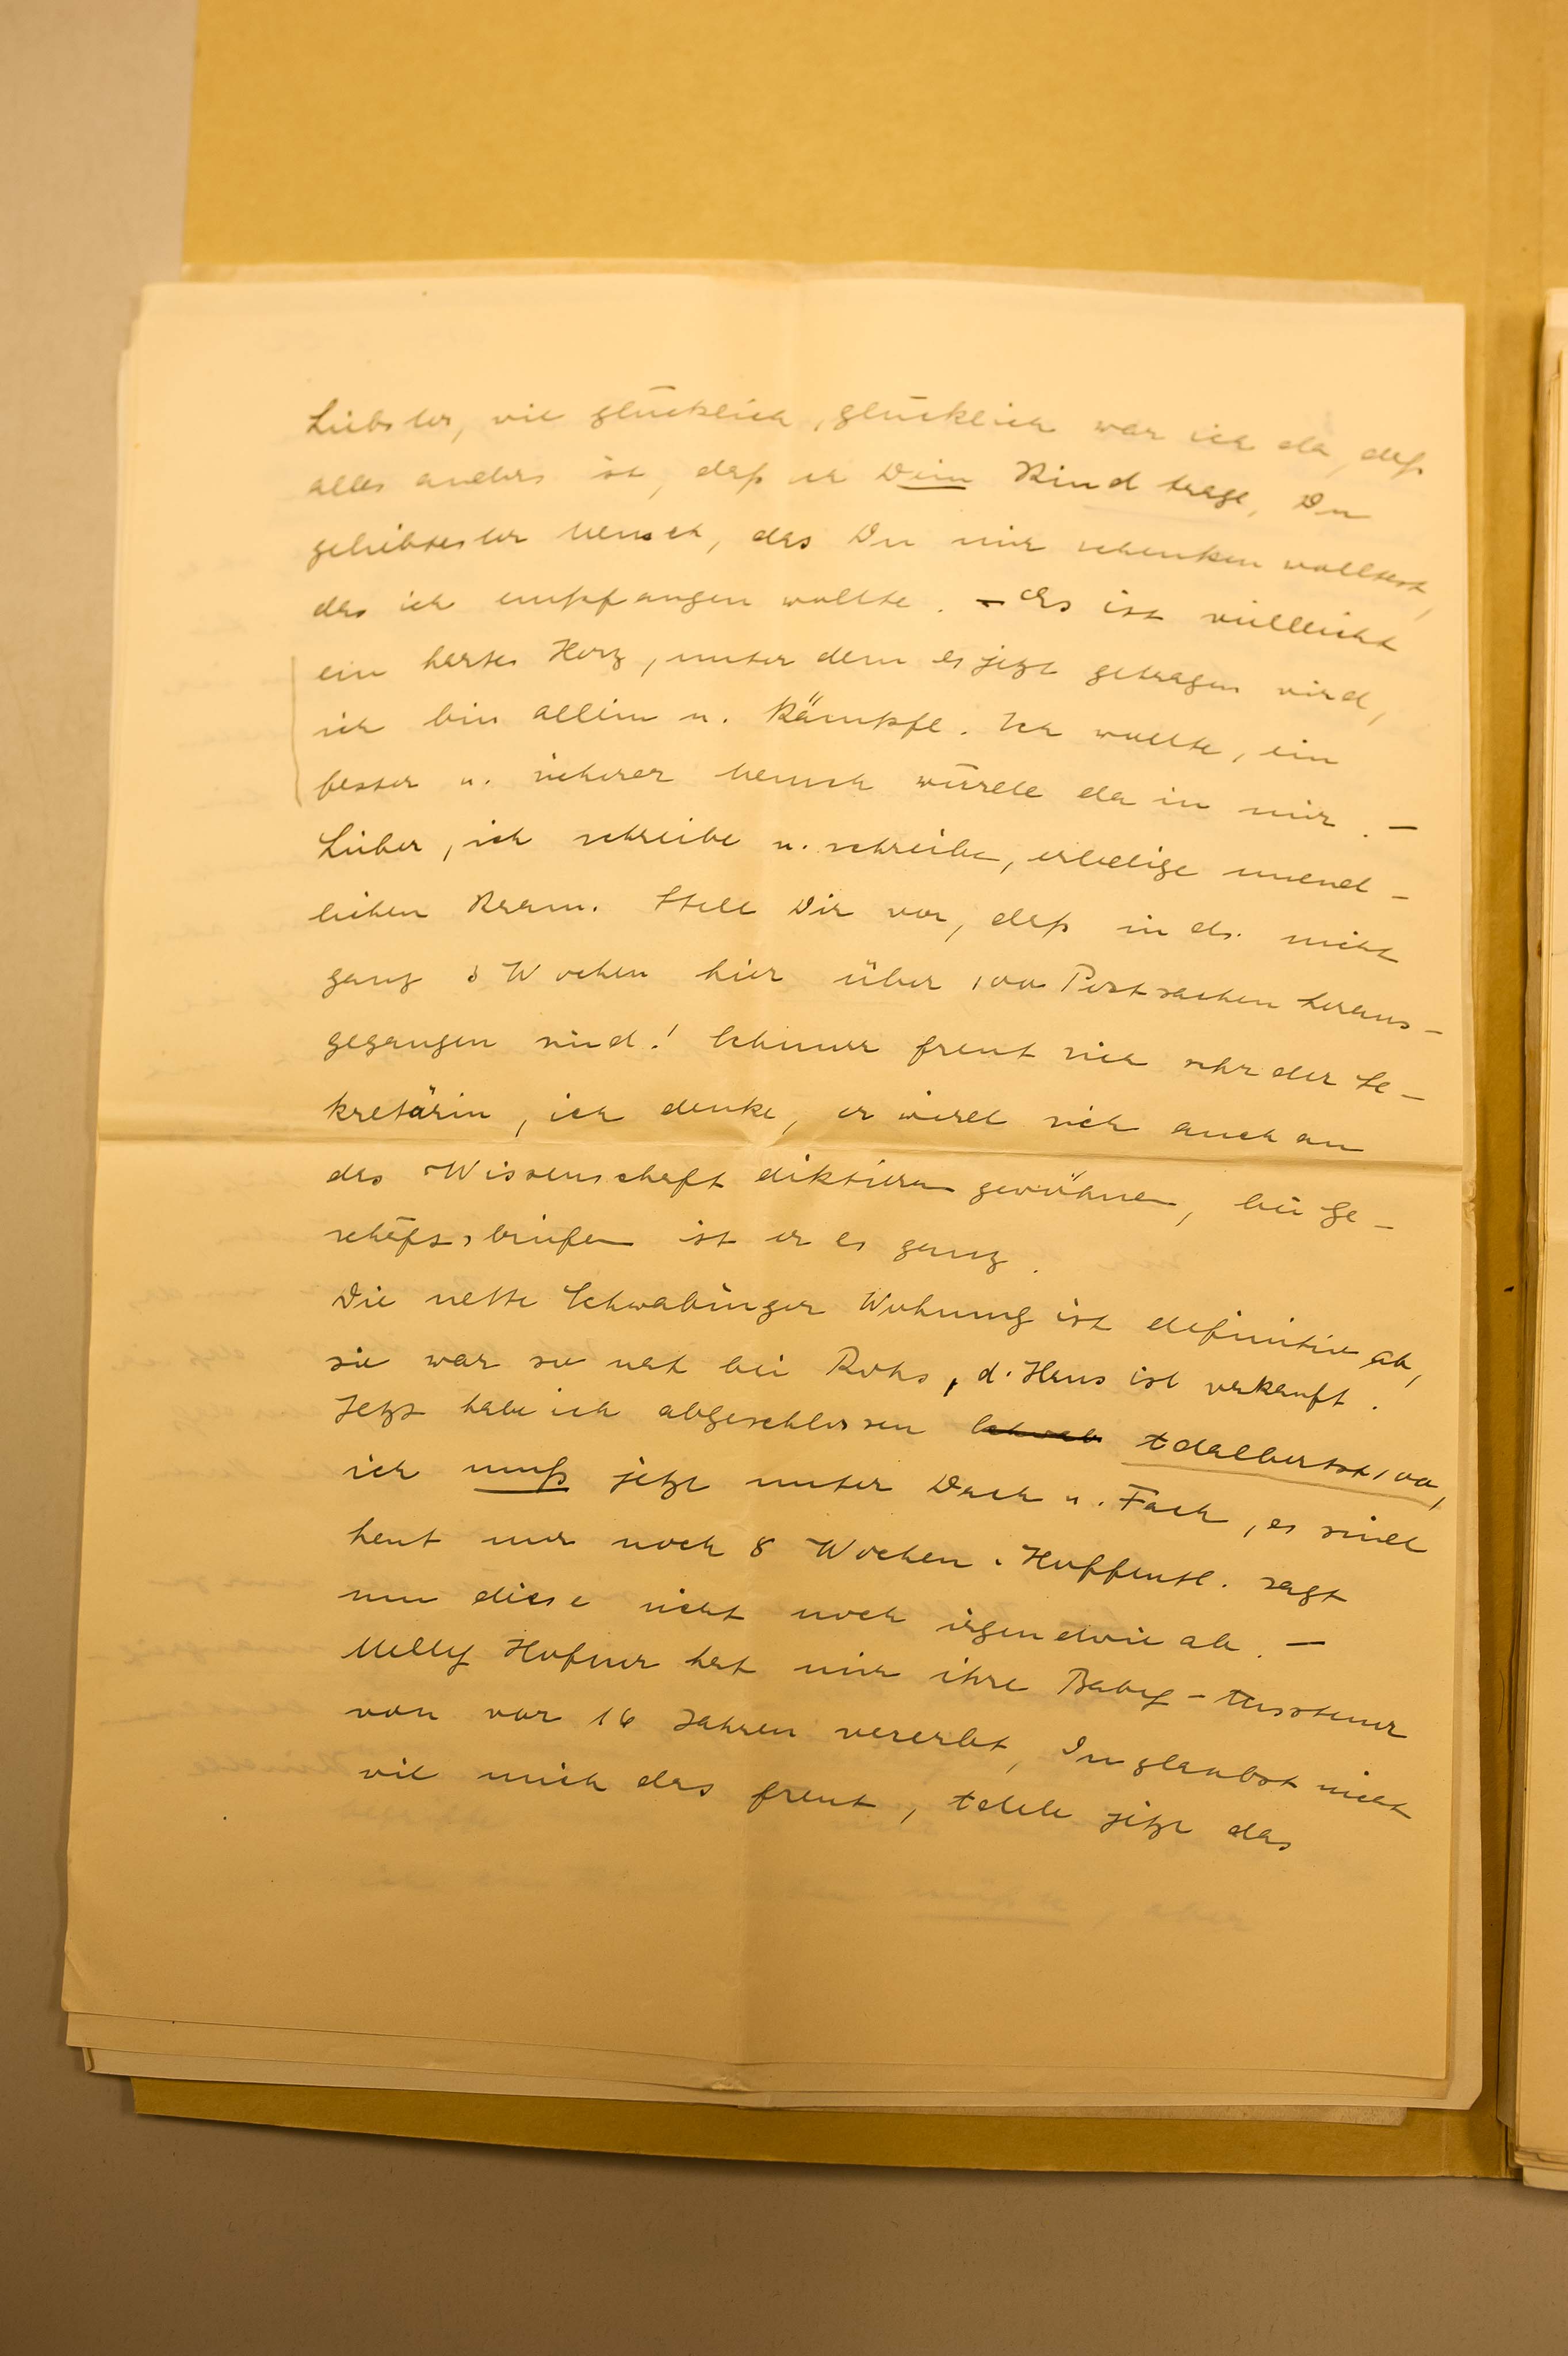 Liebster, wie glücklich, glücklich war ich da, daß
alles anders ist, daß ich Dein Kind trage, Du
geliebtester Mensch, das Du mir schenken wolltest,
das ich empfangen wollte. – Es ist vielleicht
ein hartes Herz, unter dem es jetzt getragen wird,
ich bin allein u. kämpfe. Ich wollte, ein
fester u. sicherer Mensch würde da in mir. –
Lieber, ich schreibe u. schreibe, erledige unend-
lichen Kram. Stell Dir vor, daß in ds. nicht
ganz 3 Wochen hier über 100 Postsachen heraus-
gegangen sind! freut sich sehr der Se-
kretärin, ich denke, er wird sich auch an
das Wissenschaft diktieren gewöhnen, bei Ge-
schäftsbriefen ist er es ganz.
Die nette Schwabinger Wohnung ist definitiv ab,
sie war so nah bei Rohs, d. Haus ist verkauft.
Jetzt habe ich abgeschlossen Schwab Adalbertst. 100,
ich muß jetzt unter Dach u. Fach, es sind
heut nur noch 8 Wochen. Hoffentl. sagt
nun diese nicht noch irgendwie ab. –
Melly Hofner hat mir ihre Baby-Aussteuer
von vor 16 Jahren vererbt, Du glaubst nicht
wie mich das freut, jetzt das